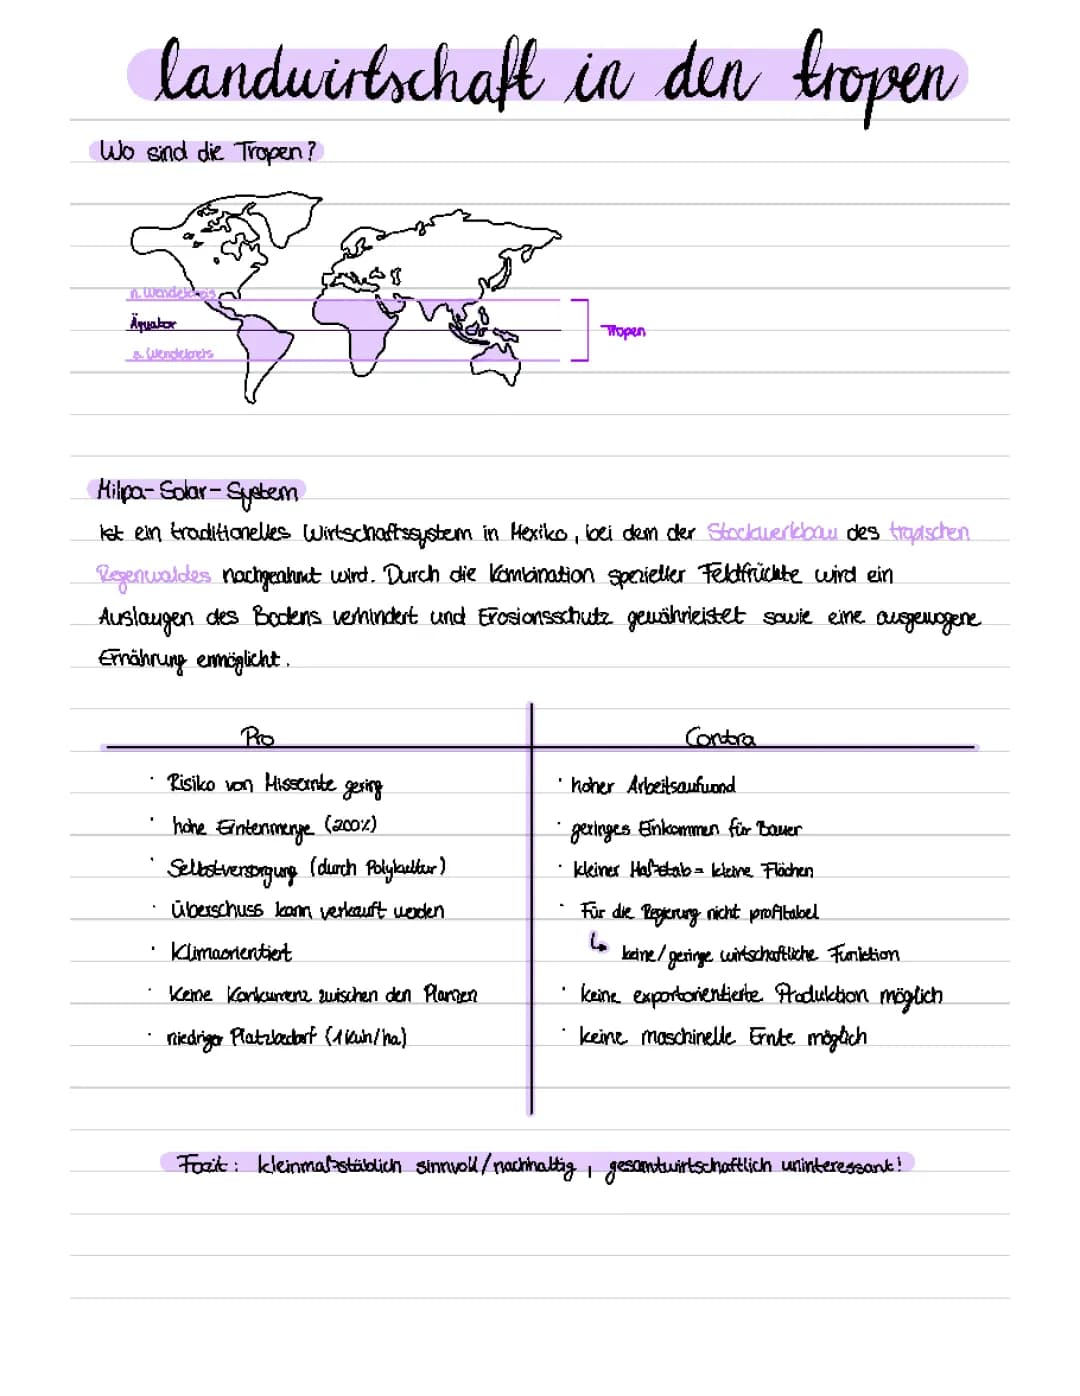 landwirtschaft in den tropen
Wo sind die Tropen?
n. Wendekreis
Äquator
s. Wendekreis
Tropen
Milpa-Solar-System
Ist ein traditionelles Wirtschaftssystem in Mexiko, bei dem der Stockwerkbau des tropischen
Regenwaldes nachgeahmt wird. Durch die Kombination spezieller Feldfrüchte wird ein
Auslaugen des Bodens verhindert und Erosionsschutz gewährleistet sowie eine ausgewogene
Ernährung ermöglicht.
Pro
Contra
· Risiko von Missernte gering
· hohe Erntemenge (200%)
· Selbstversorgung (durch Polykultur)
· Überschuss kann verkauft werden
· Klimaorientiert
· Keine Konkurrenz zwischen den Planzen
· niedriger Platzbedarf (1 Kuh/ha)
· hoher Arbeitsaufwand
· geringes Einkommen für Bauer
· kleiner Maßstab = kleine Flächen
· Für die Regierung nicht profitabel
↳ keine/geringe wirtschaftliche Funktion
· keine exportorientierte Produktion möglich
· keine maschinelle Ernte möglich
Fazit: kleinmaßstäblich sinnvoll/nachhaltig, gesamtwirtschaftlich uninteressant!